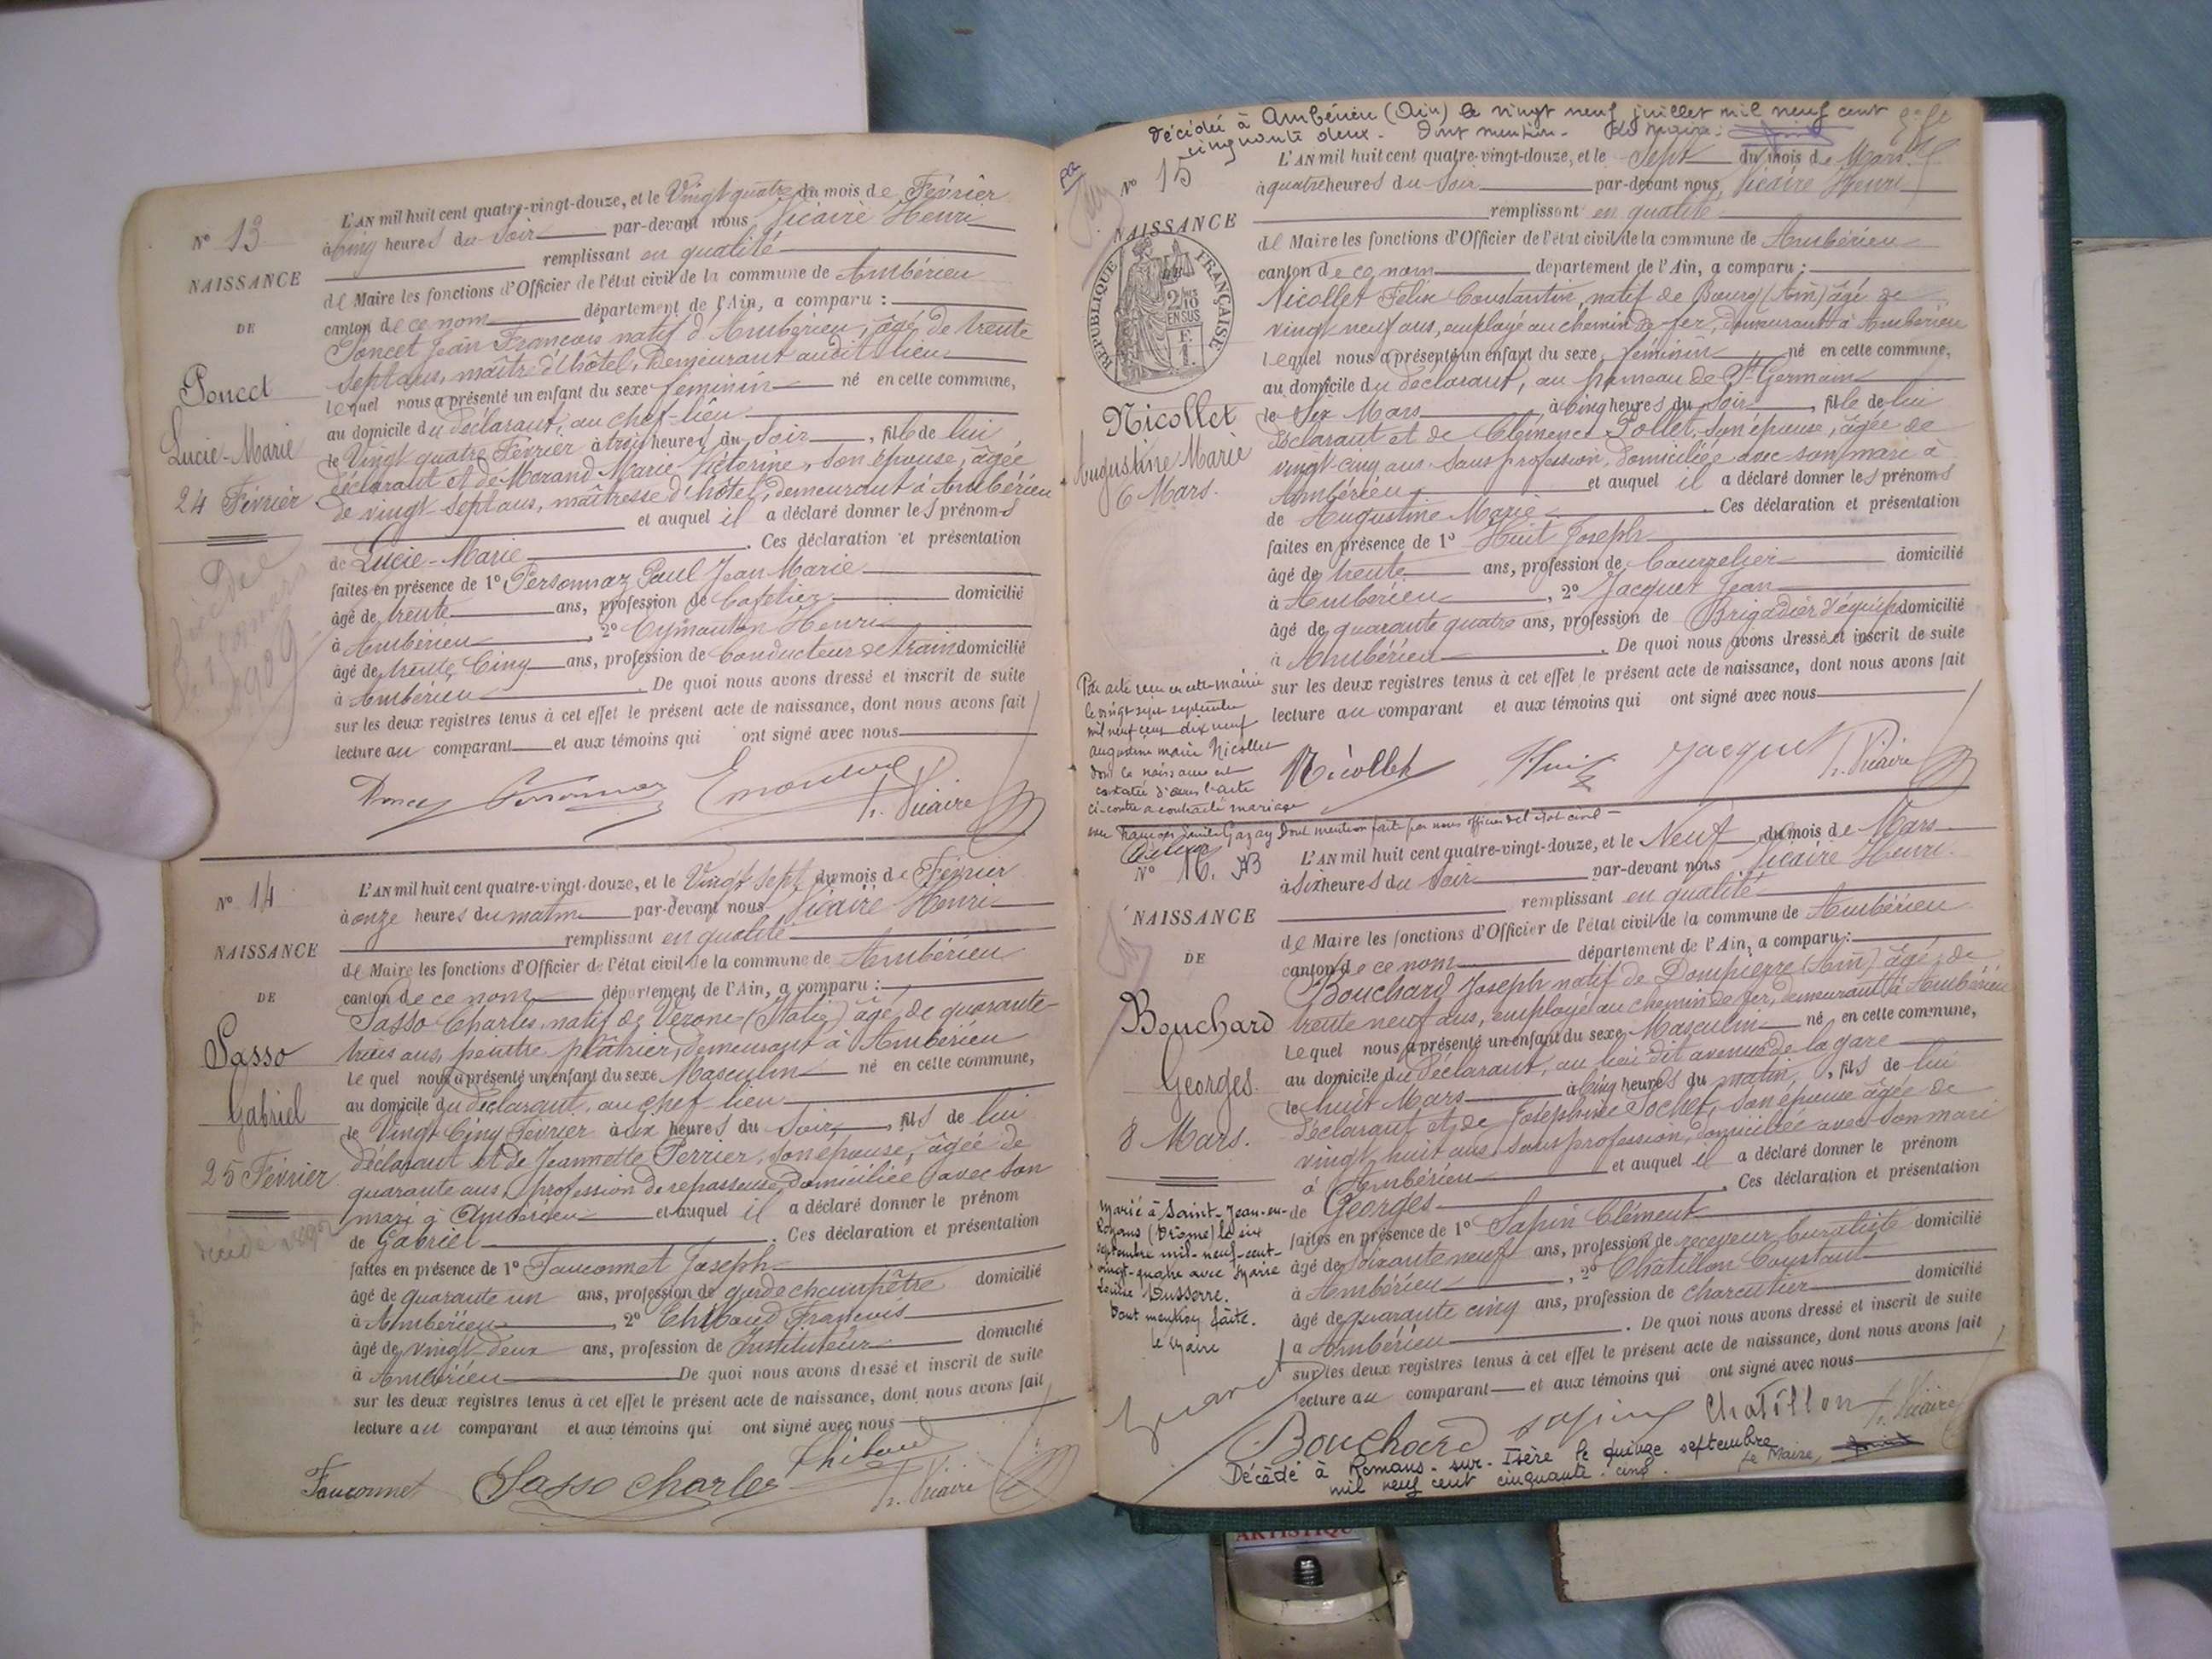 N° 13
NAISSANCE
DE
Poncet
Lucie-Marie
24 Février
L'AN mil huit cent quatre-vingt-douze, et le Vingt quatre du mois de Février
à Cinq heures du Soir par-devant nous Vicaire Henri
remplissant en qualité
de Maire les fonctions d'Officier de l'état civil de la commune de Ambérieu
canton de ce nom département de l'Ain, a comparu :
Poncet Jean François natif d'Ambérieu, âgé de trente
sept ans, maître d'hôtel, demeurant audit lieu
lequel nous a présenté un enfant du sexe féminin né en cette commune,
au domicile du déclarant, au chef-lieu
le Vingt quatre Février à trois heures du Soir, fille de lui
déclarant et de Morand Marie Victorine, son épouse, âgée
de vingt sept ans, maîtresse d'hôtel, demeurant à Ambérieu
et auquel il a déclaré donner les prénoms
de Lucie-Marie. Ces déclaration et présentation
faites en présence de 1° Personnaz Paul Jean Marie
âgé de trente ans, profession de Cafetier domicilié
à Ambérieu, 2° Henri
âgé de trente Cinq ans, profession de Conducteur de train domicilié
à Ambérieu. De quoi nous avons dressé et inscrit de suite
sur les deux registres tenus à cet effet le présent acte de naissance, dont nous avons fait
lecture au comparant et aux témoins qui ont signé avec nous
h. Vicaire
N° 14
NAISSANCE
DE
Sasso
Gabriel
25 Février
L'AN mil huit cent quatre-vingt-douze, et le Vingt Sept du mois de Février
à onze heures du matin par-devant nous Vicaire Henri
remplissant en qualité
de Maire les fonctions d'Officier de l'état civil de la commune de Ambérieu
canton de ce nom département de l'Ain, a comparu :
Sasso Charles, natif de Vérone (Italie) âgé de quarante-
trois ans, peintre plâtrier, demeurant à Ambérieu
lequel nous a présenté un enfant du sexe Masculin né en cette commune,
au domicile du déclarant, au chef-lieu
le Vingt Cinq Février à six heures du Soir, fils de lui
déclarant et de Jeannette Perrier, son épouse, âgée de
quarante ans, profession de repasseuse, domiciliée avec son
mari à Ambérieu et auquel il a déclaré donner le prénom
de Gabriel. Ces déclaration et présentation
faites en présence de 1° Fauconnet Joseph
âgé de quarante un ans, profession de garde champêtre domicilié
à Ambérieu, 2° Thibaud François
âgé de vingt-deux ans, profession de Instituteur domicilié
à Ambérieu De quoi nous avons dressé et inscrit de suite
sur les deux registres tenus à cet effet le présent acte de naissance, dont nous avons fait
lecture au comparant et aux témoins qui ont signé avec nous
Fauconnet Sasso Charles Thibaud h. Vicaire
Décédée à Ambérieu (Ain) le vingt neuf juillet mil neuf cent
cinquante deux. Dont mention. Le Maire:
N° 15
NAISSANCE
RÉPUBLIQUE FRANÇAISE
Nicollet
Augustine Marie
6 Mars.
L'AN mil huit cent quatre-vingt-douze, et le Sept du mois de Mars
à quatre heures du Soir par-devant nous, Vicaire Henri
remplissant en qualité
de Maire les fonctions d'Officier de l'état civil de la commune de Ambérieu
canton de ce nom département de l'Ain, a comparu :
Nicollet Félix Constantin, natif de Bourg (Ain) âgé de
vingt neuf ans, employé au chemin de fer, demeurant à Ambérieu
lequel nous a présenté un enfant du sexe féminin né en cette commune,
au domicile du déclarant, au hameau de St Germain
le Six Mars à Cinq heures du Soir, fille de lui
déclarant et de Clémence Pollet, son épouse, âgée de
vingt-cinq ans sans profession, domiciliée avec son mari à
Ambérieu et auquel il a déclaré donner les prénoms
de Augustine Marie. Ces déclaration et présentation
faites en présence de 1° Huit Joseph
âgé de trente ans, profession de Bourrelier domicilié
à Ambérieu, 2° Jacquet Jean
âgé de quarante quatre ans, profession de Brigadier d'équipe domicilié
à Ambérieu. De quoi nous avons dressé et inscrit de suite
sur les deux registres tenus à cet effet le présent acte de naissance, dont nous avons fait
lecture au comparant et aux témoins qui ont signé avec nous
Par acte reçu en cette mairie
le vingt sept septembre
mil neuf cent dix neuf
Augustine Marie Nicollet
dont la naissance est
constatée d'autre l'acte
ci-contre a contracté mariage
avec François Emile Gazay Dont mention faite par nous officier de l'état civil
Nicollet Huit Jacquet h. Vicaire
N° 16.
NAISSANCE
DE
Bouchard
Georges
8 Mars.
L'AN mil huit cent quatre-vingt-douze, et le Neuf du mois de Mars
à Six heures du Soir par-devant nous Vicaire Henri
remplissant en qualité
de Maire les fonctions d'Officier de l'état civil de la commune de Ambérieu
canton de ce nom département de l'Ain, a comparu :
Bouchard Joseph natif de Dompierre (Ain) âgé de
trente neuf ans, employé au chemin de fer, demeurant à Ambérieu
lequel nous a présenté un enfant du sexe Masculin né en cette commune,
au domicile du déclarant, au lieu dit avenue de la gare
le huit Mars à Cinq heures du matin, fils de lui
déclarant et de Joséphine Sochet, son épouse âgée de
vingt huit ans, sans profession, domiciliée avec son mari
à Ambérieu et auquel il a déclaré donner le prénom
de Georges. Ces déclaration et présentation
faites en présence de 1° Sapin Clément
âgé de soixante neuf ans, profession de receveur buraliste domicilié
à Ambérieu, 2° Chatillon Constant
âgé de quarante cinq ans, profession de charcutier domicilié
à Ambérieu. De quoi nous avons dressé et inscrit de suite
sur les deux registres tenus à cet effet le présent acte de naissance, dont nous avons fait
lecture au comparant et aux témoins qui ont signé avec nous
Marié à Saint-Jean-en-
Royans (Drôme) le six
septembre mil-neuf-cent-
vingt-quatre avec Marie
Louise Dusserre.
Dont mention faite.
Le Maire
Bouchard Sapin Chatillon h. Vicaire
Décédé à Romans-sur-Isère le quinze septembre
mil neuf cent cinquante cinq. Le Maire,
ARTISTIQUE